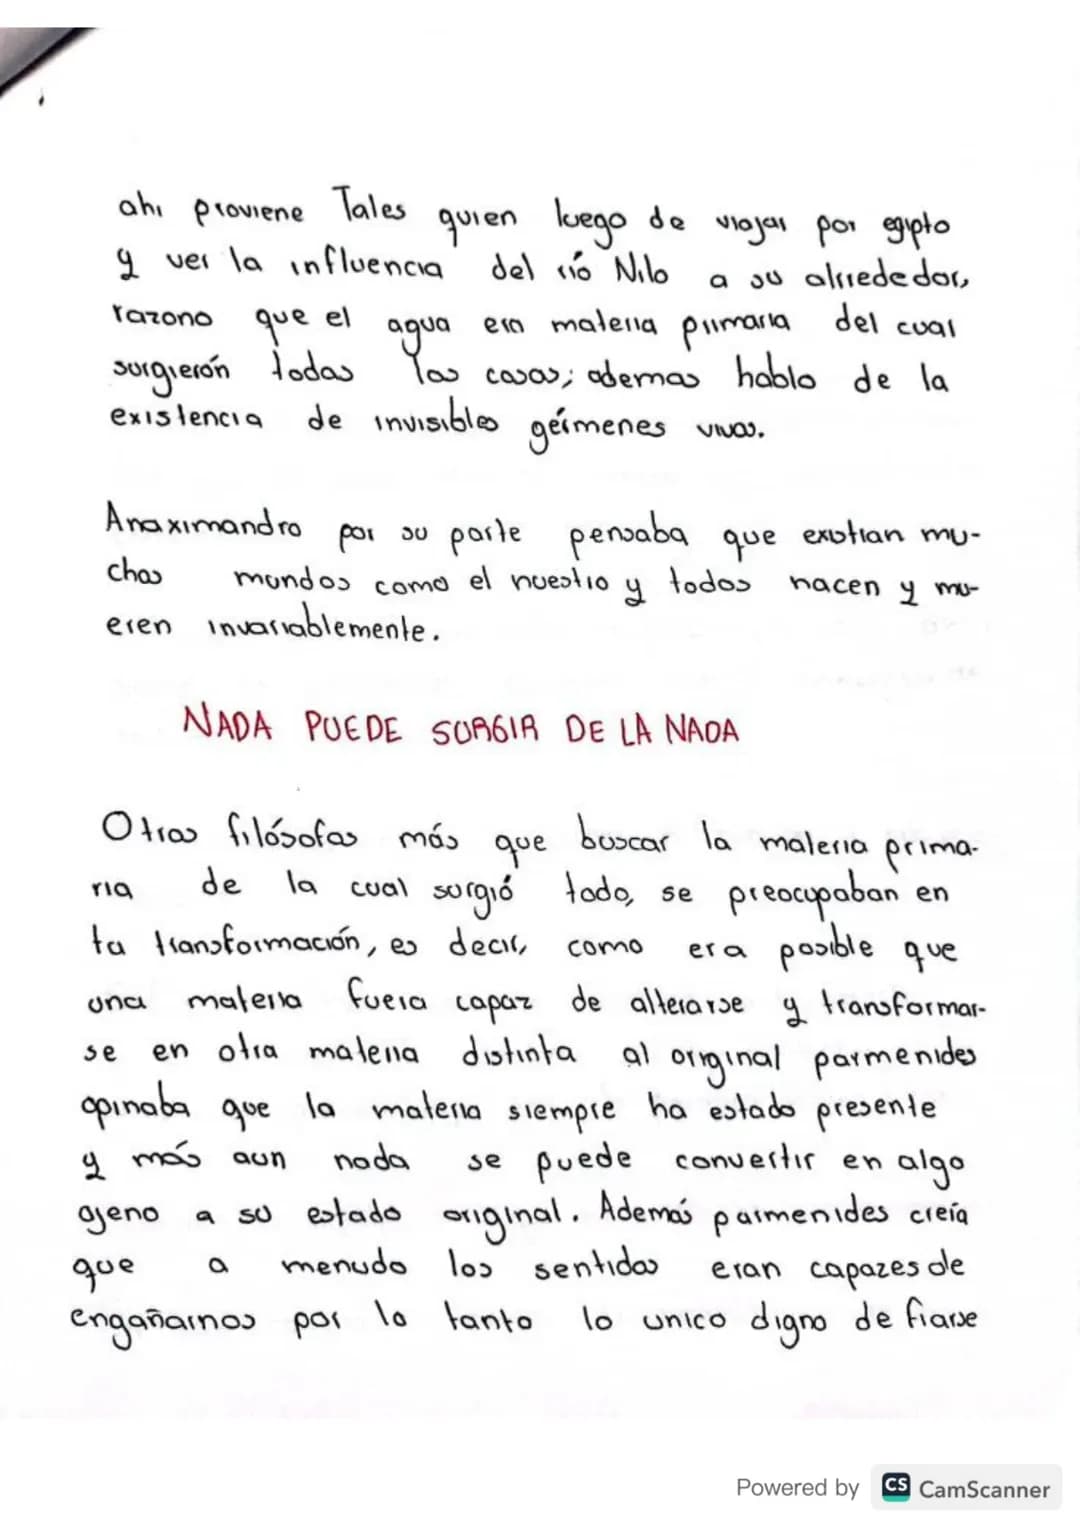 ahi proviene Tales quien luego de viajar por egipto
y ver la influencia del río Nilo a su alrrededor,
razono que el agua era materia primaria del cual
surgierón todas las cosas; ademas hablo de la
existencia de invisibles gérmenes vivos.
Anaximandro por su parte pensaba que existian mu-
chos mundos como el nuestro y todos nacen y mu-
eren invariablemente.
NADA PUEDE SURGIR DE LA NADA
Otros filósofos más que buscar la materia prima-
ria de la cual surgió todo, se preocupaban en
la transformación, es decir, como era posible que
una materia fuera capaz de alterarse y transformar-
se en otra materia distinta al original parmenides
opinaba que la materia siempre ha estado presente
y más aun nada se puede convertir en algo
ajeno a su estado original. Además parmenides creía
que a menudo los sentidos eran capazes de
engañarnos por lo tanto lo unico digno de fiarse
Powered by CS CamScanner